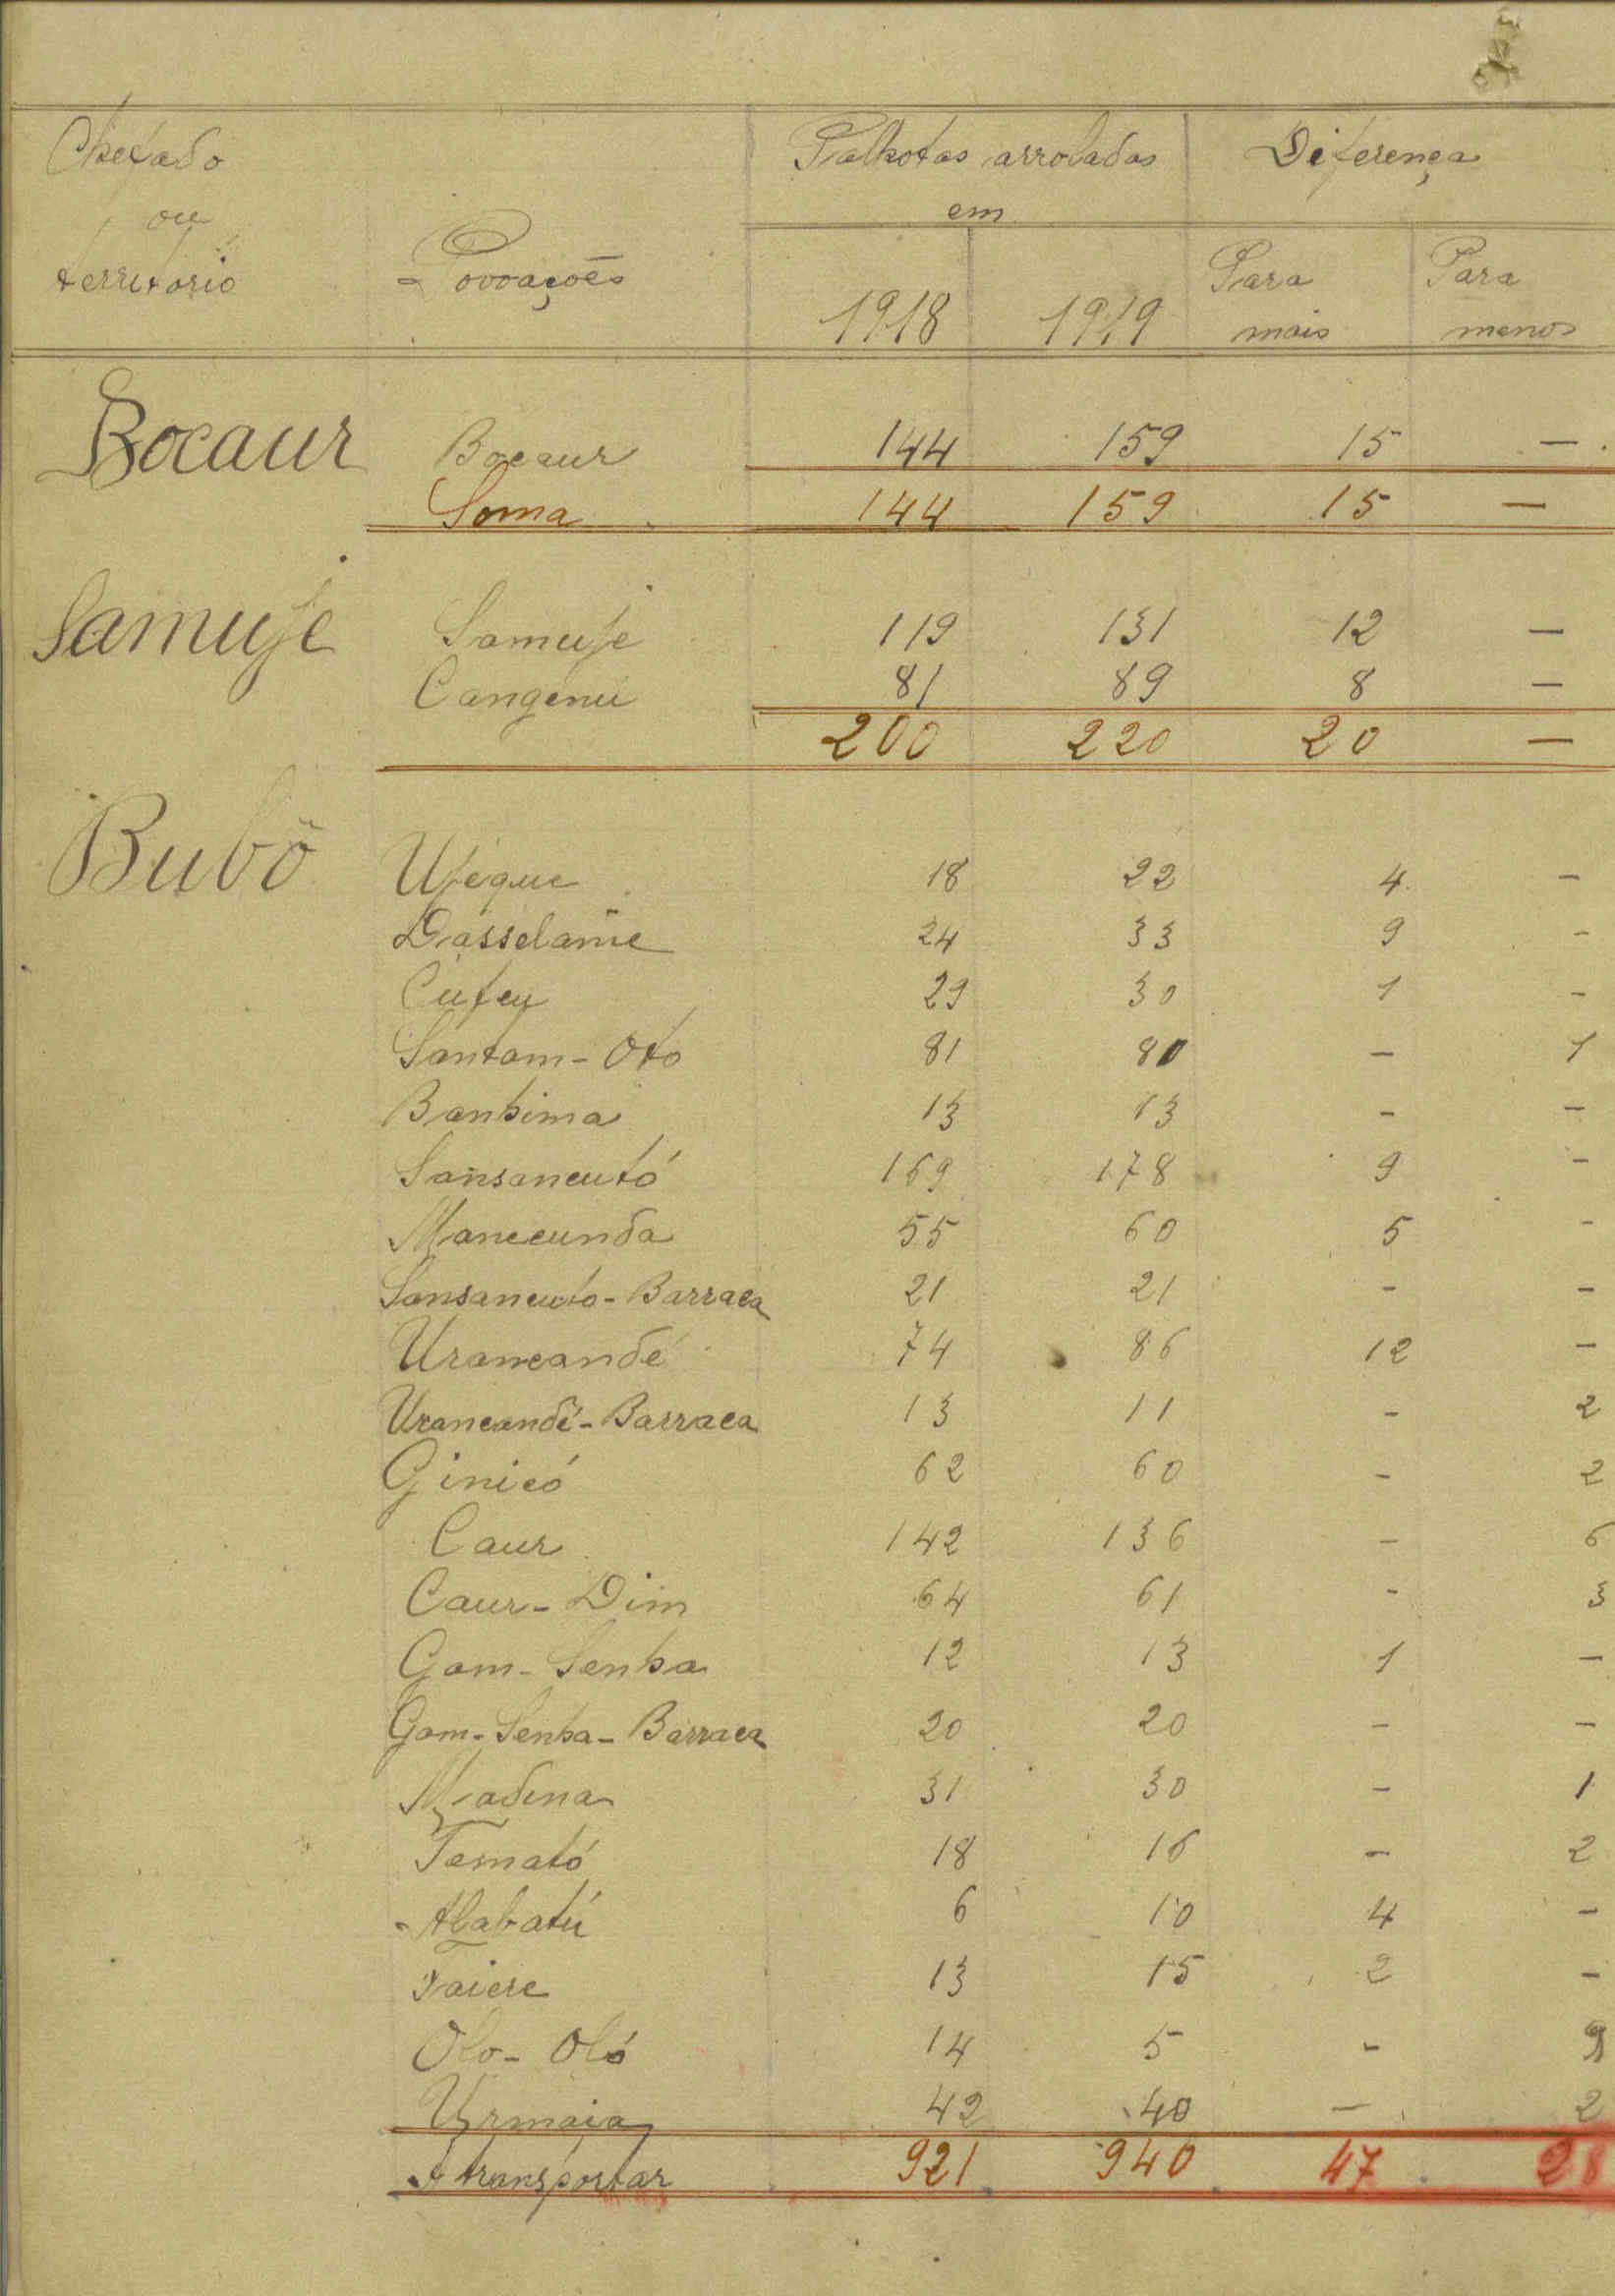 Chefado ou territorio | Povoações | Palhotas arroladas em | Diferença
1918 | 1919 | Para mais | Para menos
Bocaur | Bocaur | 144 | 159 | 15 | —
Soma | 144 | 159 | 15 | —
Samuje | Samuje | 119 | 131 | 12 | —
Cangenú | 81 | 89 | 8 | —
200 | 220 | 20 | —
Bubô | Uféque | 18 | 22 | 4 | -
Dasselame | 24 | 33 | 9 | -
Cufeu | 29 | 30 | 1 | -
Santam-Oto | 81 | 80 | - | 1
Banhima | 13 | 13 | - | -
Sansancutó | 169 | 178 | 9 | -
Mancunda | 55 | 60 | 5 | -
Sansancuto-Barraca | 21 | 21 | - | -
Urancandé | 74 | 86 | 12 | -
Urancandé-Barraca | 13 | 11 | - | 2
Ginicó | 62 | 60 | - | 2
Caur | 142 | 136 | - | 6
Caur-Dim | 64 | 61 | - | 3
Gam-Senha | 12 | 13 | 1 | -
Gam-Senha-Barraca | 20 | 20 | - | -
Madina | 31 | 30 | - | 1
Temató | 18 | 16 | - | 2
Alabatú | 6 | 10 | 4 | -
Faiere | 13 | 15 | 2 | -
Olo-Oló | 14 | 5 | - | 9
Urmaia | 42 | 40 | — | 2
A transportar | 921 | 940 | 47 | 28